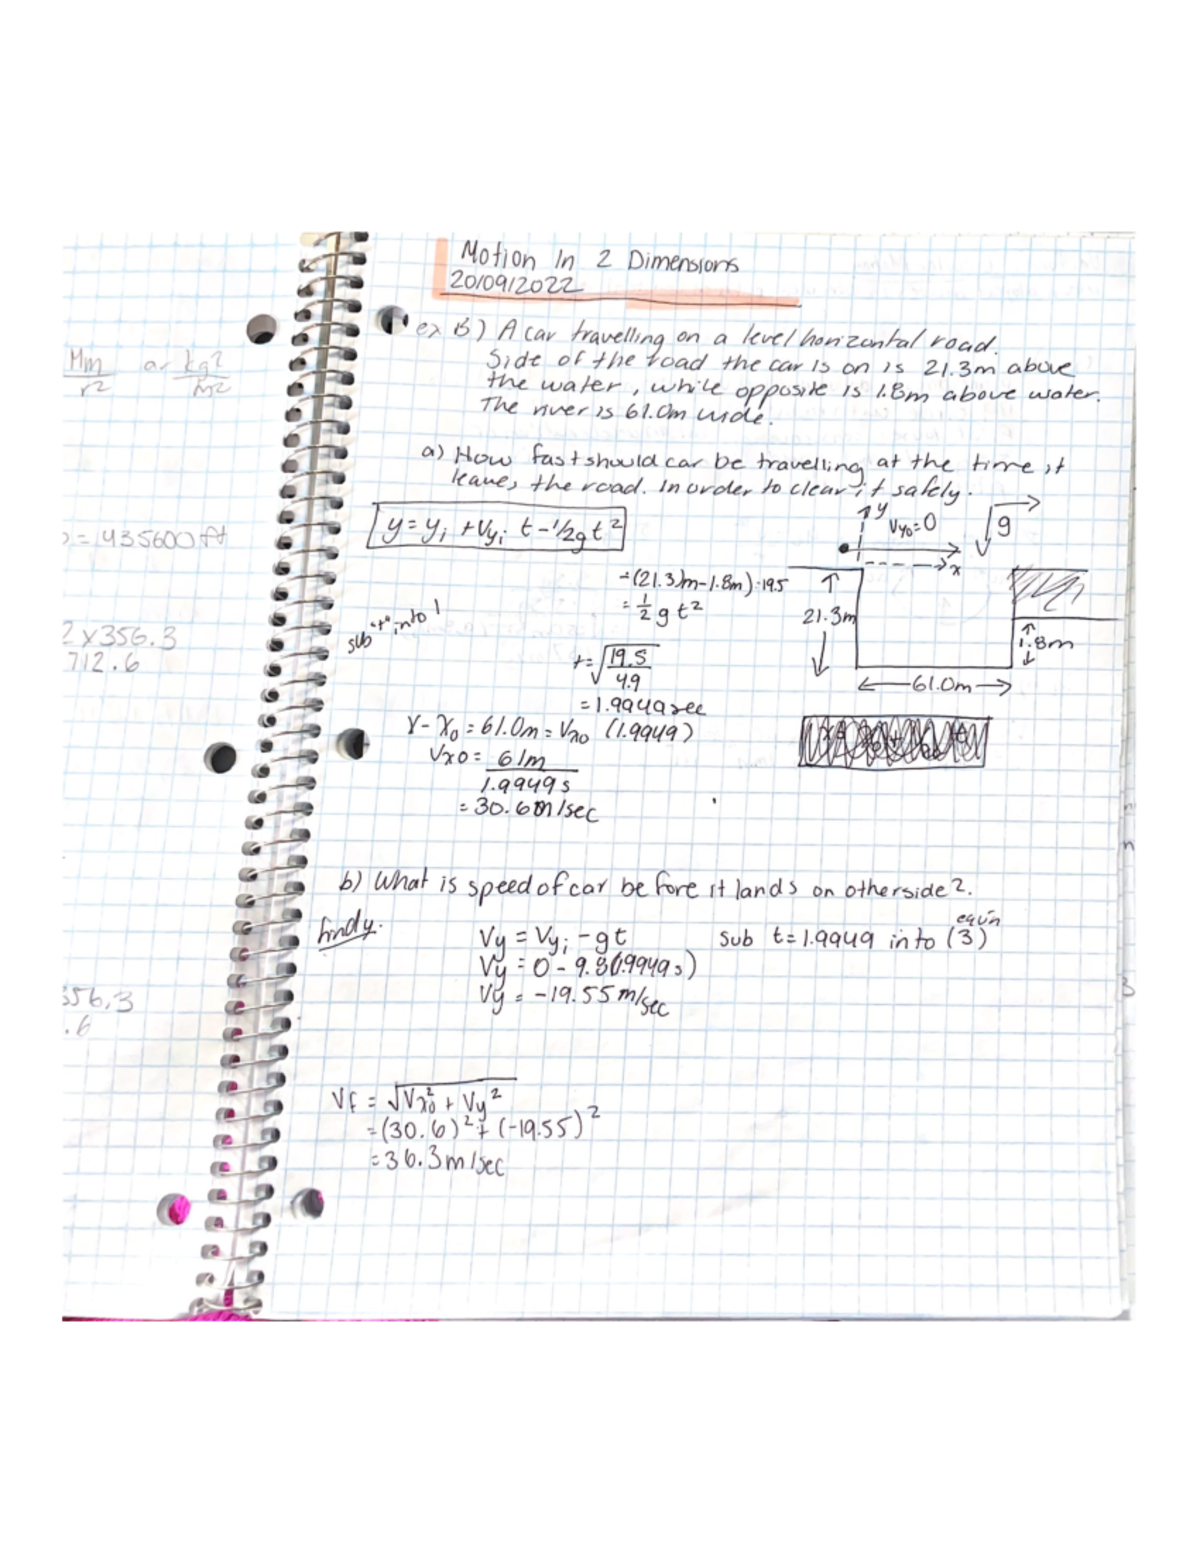 Motion In 2 Dimensions
20/09/2022
ex B) A car travelling on a level horizontal road.
Side of the road the car is on is 21.3m above
the water, while opposite is 1.8m above water.
The river is 61.0m wide.
a) How fast should car be travelling at the time it
leaves the road. In order to clear it safely.
y = yi + Vyi t - 1/2 g t²
y
Vyo = 0
g
x
= (21.3)m - 1.8m) = 19.5
= 1/2 g t²
sub "t" into 1
21.3m
1.8m
61.0m
t = √19.5/4.9
= 1.9949 sec
X - X₀ = 61.0m = Vx0 (1.9949)
Vx0 = 61m/1.9949s
= 30.6m/sec
b) What is speed of car before it lands on otherside?.
find y.
Vy = Vyi - gt
sub t = 1.9949 into eqin (3)
Vy = 0 - 9.8(1.9949s)
Vy = -19.55 m/sec
Vf = √Vx0² + Vy²
= (30.6)² + (-19.55)²
= 36.3m/sec
Mm/r²
or kg²/m²
= 435600 ft
2 x 356.3
712.6
356.3
.6